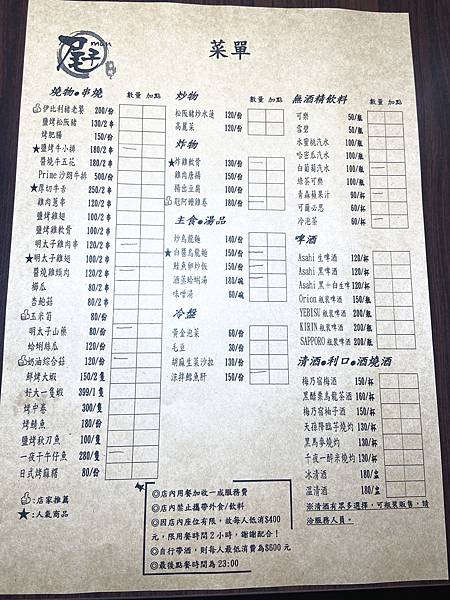 尾子
man
菜單
燒物●串燒 數量 加點
伊比利豬老饕 200/份
鹽烤松阪豬 130/2串
烤肥腸 150/份
★鹽烤牛小排 180/2串
醬燒牛五花 180/2串
Prime沙朗牛排 500/份
★厚切牛舌 250/2串
雞肉蔥串 120/2串
鹽烤雞翅 100/2串
鹽烤雞軟骨 130/2串
明太子雞肉串 120/2串
★明太子雞翅 100/2串
醬燒雞頸肉 120/2串
櫛瓜 80/2串
杏鮑菇 80/2串
玉米筍 80/份
明太子山藥 80/份
蛤蜊絲瓜 120/份
奶油綜合菇 120/份
鮮烤大蝦 150/2隻
好大一隻蝦 399/1隻
烤中卷 300/隻
烤鯖魚 180/份
鹽烤秋刀魚 100/隻
★一夜干午仔魚 280/隻
日式烤麻糬 80/份
:店家推薦
★:人氣商品
炒物 數量 加點
松阪豬炒水蓮 120/份
高麗菜 120/份
炸物
★炸雞軟骨 130/份
雞肉唐揚 150/份
揚出豆腐 100/份
尾阿嬤雞卷 180/份
主食●湯品
炒烏龍麵 140/份
★白醬烏龍麵 150/份
鮭魚卵炒飯 150/份
酒蒸蛤蜊湯 180/碗
味噌湯 60/碗
冷盤
黃金泡菜 60/份
毛豆 30/份
胡麻生菜沙拉 130/份
涼拌鱈魚肝 150/份
無酒精飲料 數量 加點
可樂 50/瓶
雪碧 50/瓶
水蜜桃汽水 100/瓶
哈密瓜汽水 100/瓶
白葡萄汽水 100/瓶
綠茶可樂 100/瓶
青森蘋果汁 90/瓶
可爾必思 60/杯
冷泡茶 60/杯
啤酒
Asahi 生啤酒 120/杯
Asahi 黑啤酒 120/杯
Asahi 黑+白生啤 120/杯
Orion 瓶裝啤酒 150/瓶
YEBISU 瓶裝啤酒 200/瓶
KIRIN 瓶裝啤酒 200/瓶
SAPPORO 瓶裝啤酒 200/瓶
清酒●利口●酒燒酒
梅乃宿梅酒 150/杯
黑醋栗烏龍茶酒 160/杯
梅乃宿柚子酒 150/杯
天孫降臨芋燒灼 130/杯
黑馬麥燒灼 130/杯
千夜一醉米燒灼 130/杯
冰清酒 180/壺
溫清酒 180/壺
※清酒有眾多選擇，可瓶裝販售，請
洽服務人員。
◎店內用餐加收一成服務費
◎店內禁止攜帶外食/飲料
◎因店內座位有限，故每人低消$400
元，限用餐時間2小時，謝謝配合！
◎自行帶酒，則每人最低消費為$600元
◎最後點餐時間為23:00